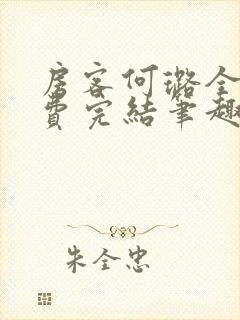 房客何璐全
費完結筆趣
朱全忠